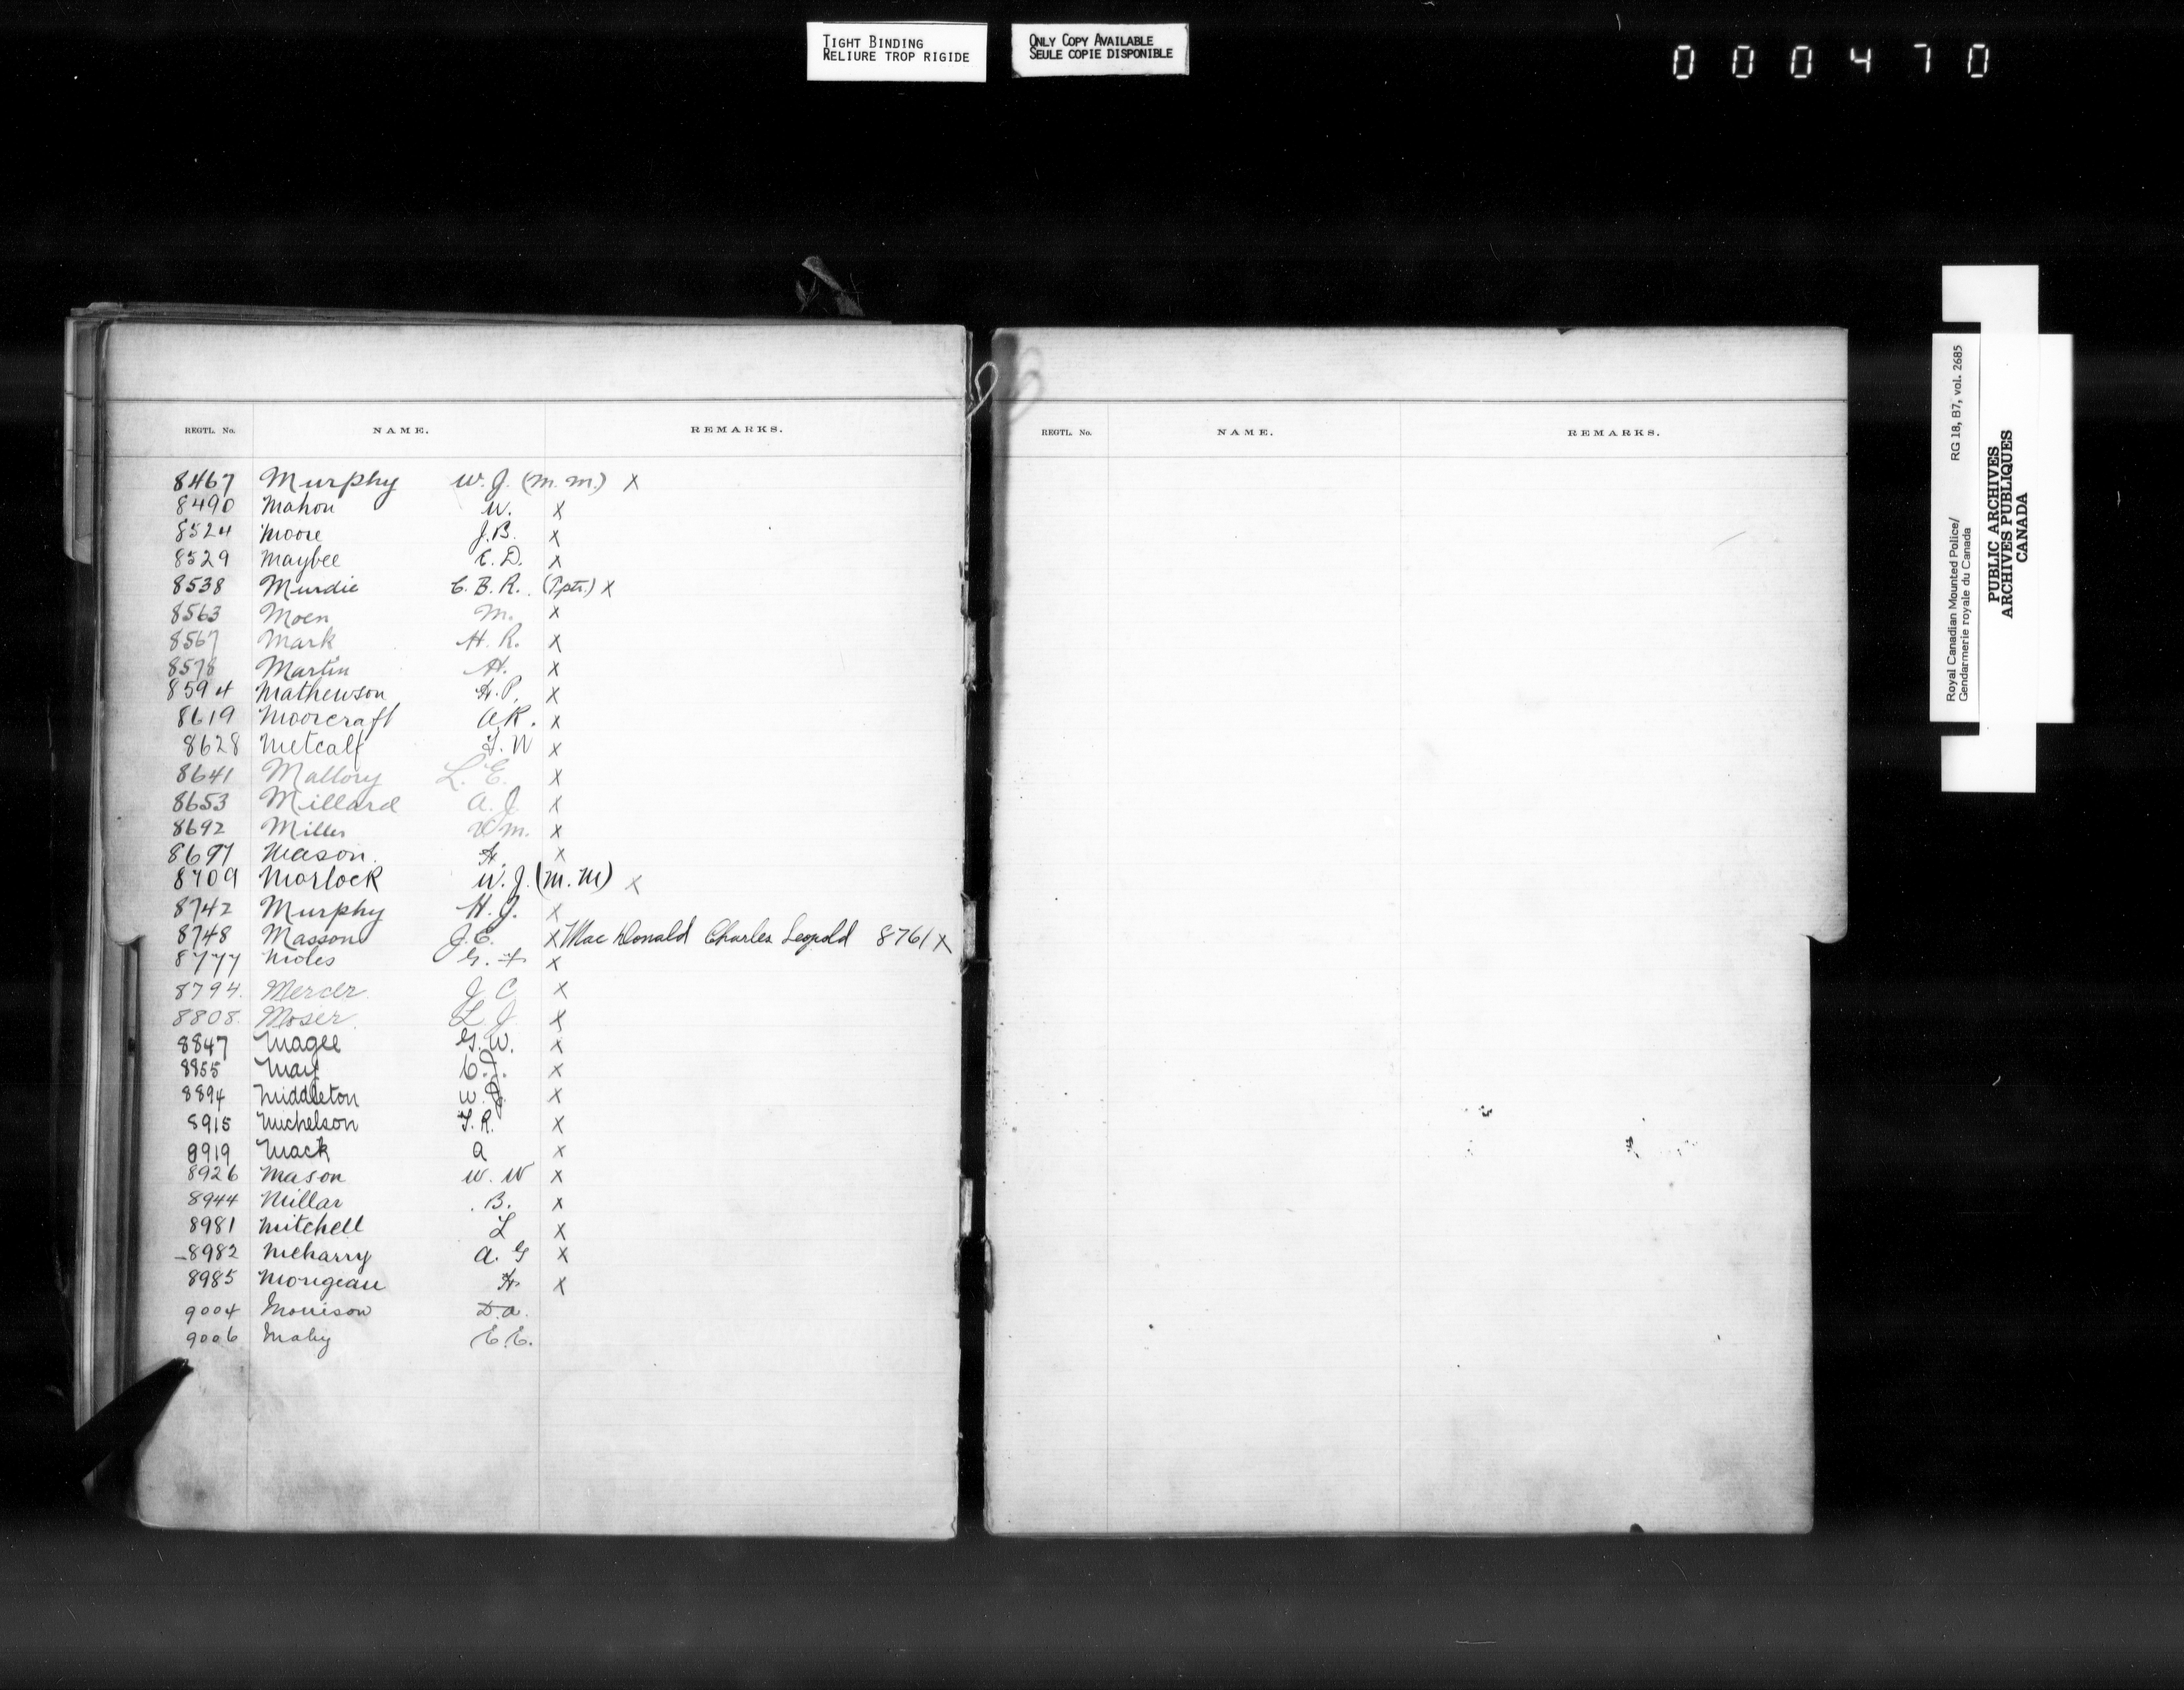 TIGHT BINDING
RELIURE TROP RIGIDE
ONLY COPY AVAILABLE
SEULE COPIE DISPONIBLE
000470
REGTL. No. NAME. REMARKS.
8467 Murphy W. J. (M. M.) X
8490 Mahon W. X
8524 Moore J. B. X
8529 Maybee E. D. X
8538 Murdie C. B. R. (Tptr.) X
8563 Moen M. X
8567 Mark H. R. X
8578 Martin H. X
8594 Mathewson H. P. X
8619 Moorcraft A. R. X
8628 Metcalf F. W X
8641 Mallory L. E. X
8653 Millard A. J. X
8692 Miller Wm. X
8697 Mason H. X
8709 Morlock W. J. (M. M) X
8742 Murphy H. J. X
8748 Masson J. E. X MacDonald Charles Leopold 8761 X
8777 Moles G. X
8794. Mercer J C X
8808. Moser L J X
8847 Magee G. W. X
8855 May C. J. X
8894 Middleton W. X
8915 Michelson T. R. X
8919 Mack A X
8926 Mason W. W X
8944 Millar B. X
8981 Mitchell L X
8982 Meharry A. G X
8985 Morigeau H X
9004 Morrison D. A.
9006 Maby E. E.
REGTL. No. NAME. REMARKS.
Royal Canadian Mounted Police/ RG 18, B7, vol. 2685
Gendarmerie royale du Canada
PUBLIC ARCHIVES
ARCHIVES PUBLIQUES
CANADA